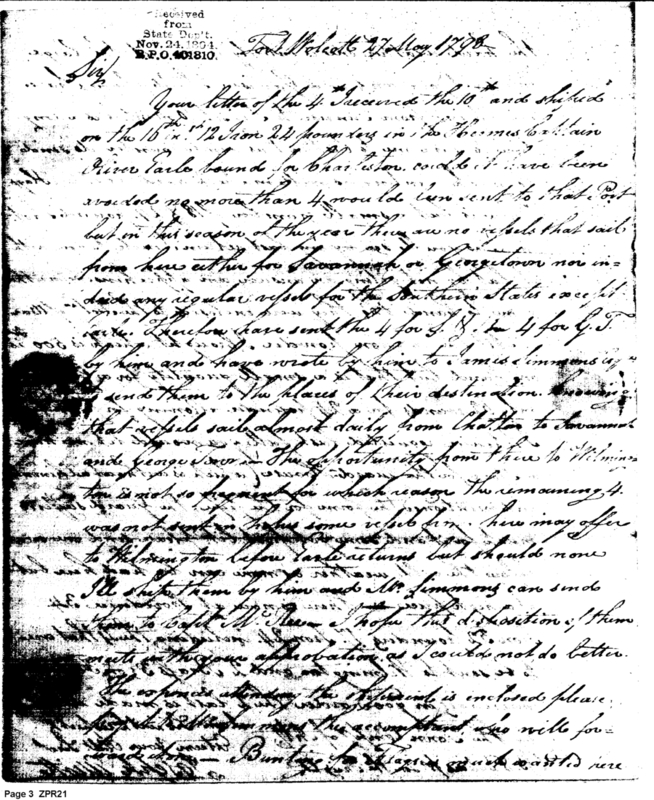 Received
from
State Dep't.
Nov. 24, 1894.
R.P.O. 401810.
Fort Wolcott 27 May 1798
Sir
Your letter of the 4th I received the 10th and shiped
on the 16th 12 Iron 24 pounders in the Hermes Captain
Oliver Earle bound for Charleston could it have been
avoided no more than 4 would been sent to that Port
but in this season of the year there are no vessels that sail
from here either for Savannah or Georgetown nor in-
deed any regular vessels for the Southern States except
Earle. Therefore have sent the 4 for & 4 for G.T.
by him and have wrote by him to James Simmons Esqr
to send them to the places of their destination. knowing
that vessels sail almost daily from Chatton to Savannah
and George Town. The opportunity from there to Wilming
ton is not so frequent for which reason the remaining 4
was not sent in hopes some vessel from here may offer
to Wilmington before Earle returns but should none
I'll ship them by him and Mr. Simmons can send
them to Capt. I hope this disposition of them
meets with your approbation as I could not do better.
The expences attending the is enclosed please
the accomptant who will for-
Bunting for much wanted here
Page 3 ZPR21